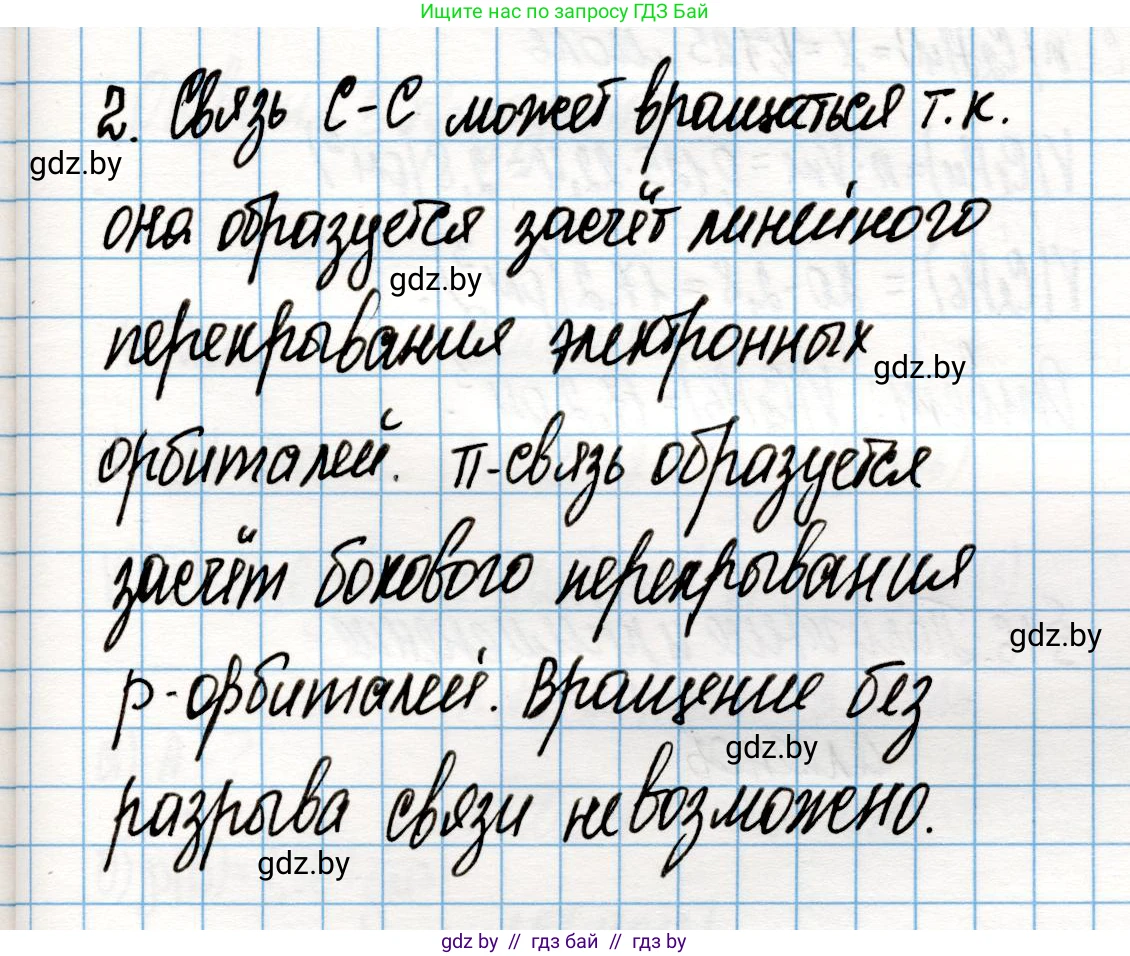 Ищите нас по запросу ГДЗ Бай
2. Связь С-С может вращаться т.к.
gdz.by
она образуется засчёт линейного
gdz.by
перекрывания электронных
gdz.by
орбиталей. π-связь образуется
засчёт бокового перекрывания
gdz.by
р-орбиталей. Вращение без
gdz.by
разрыва связи невозможено.
gdz.by
gdz by // гдз бай // гдз by